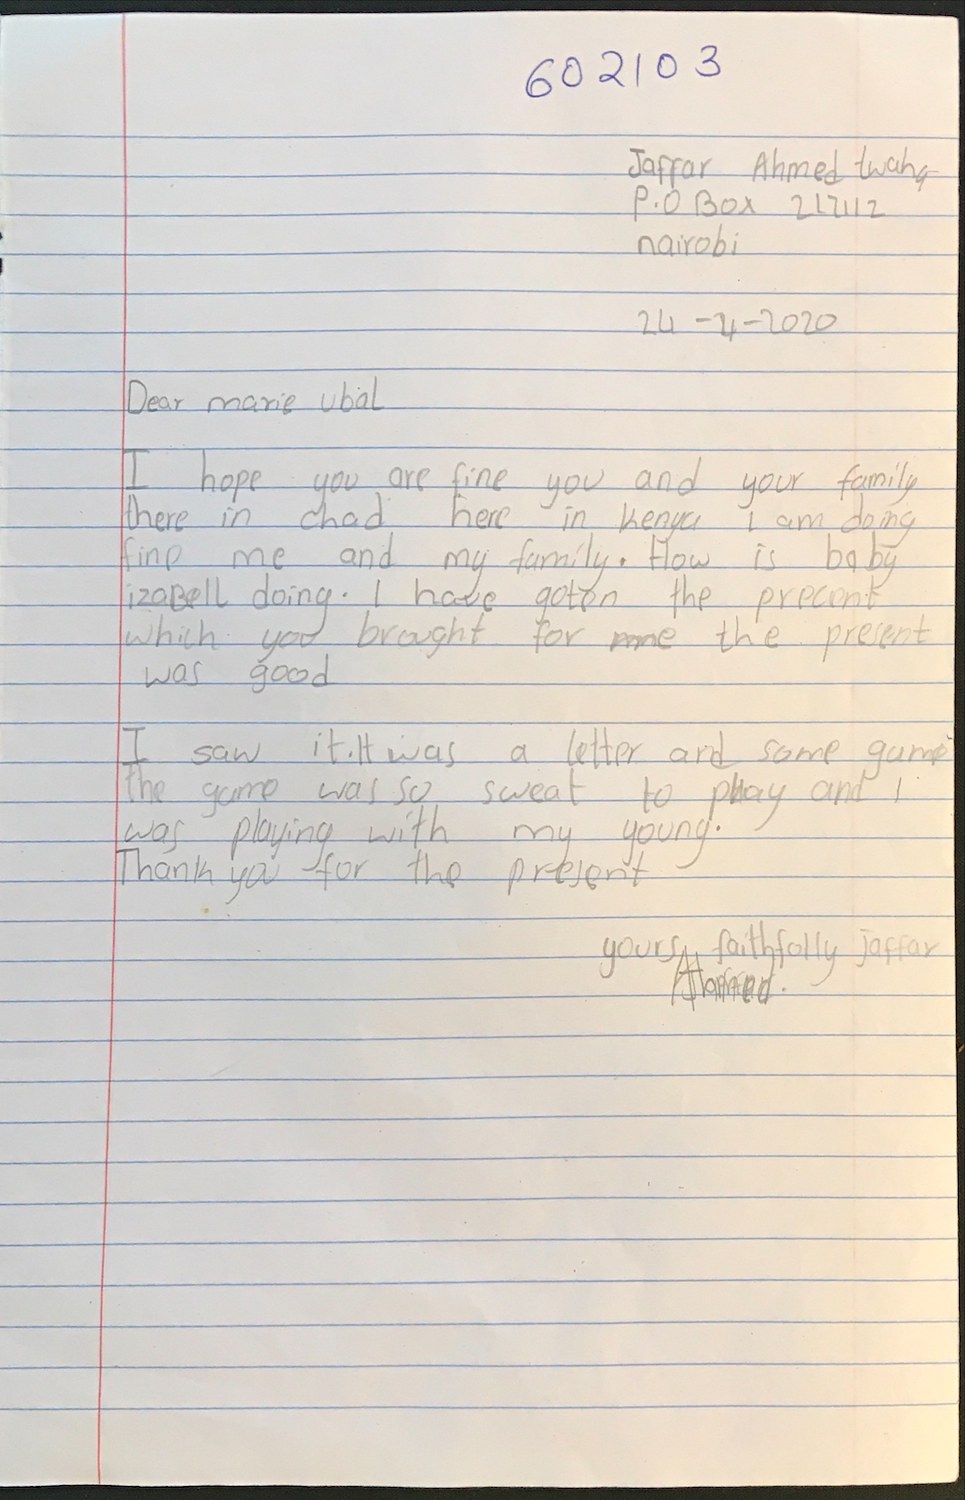 602103
Jaffar Ahmed twaha
P.O Box 217112
nairobi
24-4-2020
Dear marie ubal
I hope you are fine you and your family
there in chad here in kenya i am doing
fine me and my family. How is baby
izaBell doing. I have goten the precent
which you brought for me the present
was good
I saw it. It was a letter and some game
the game was so sweat to play and i
was playing with my young.
Thank you for the present
yours faithfolly jaffar
Ahmed.